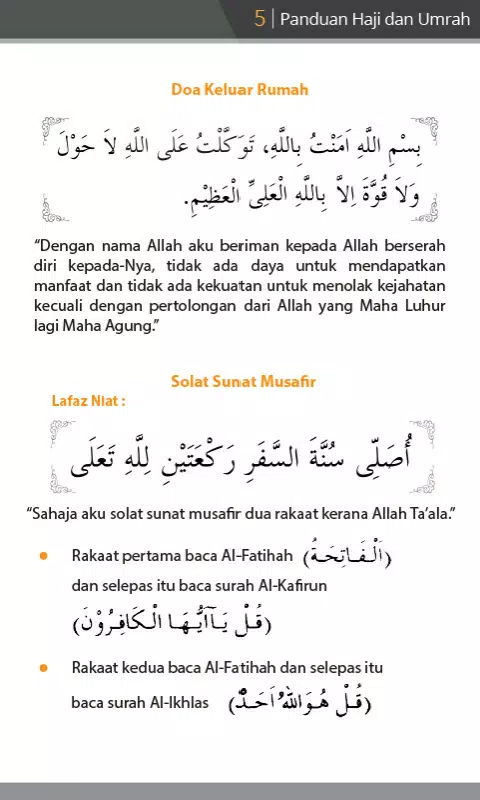 5 | Panduan Haji dan Umrah
Doa Keluar Rumah
بِسْمِ اللَّهِ اَمَنْتُ بِاللَّهِ، تَوَكَّلْتُ عَلَى اللَّهِ لاَ حَوْلَ
وَلاَ قُوَّةَ اِلاَّ بِاللَّهِ الْعَلِىِّ الْعَظِيْمِ.
“Dengan nama Allah aku beriman kepada Allah berserah
diri kepada-Nya, tidak ada daya untuk mendapatkan
manfaat dan tidak ada kekuatan untuk menolak kejahatan
kecuali dengan pertolongan dari Allah yang Maha Luhur
lagi Maha Agung.”
Solat Sunat Musafir
Lafaz Niat :
أُصَلِّى سُنَّةَ السَّفَرِ رَكْعَتَيْنِ لِلَّهِ تَعَلَى
“Sahaja aku solat sunat musafir dua rakaat kerana Allah Ta’ala.”
• Rakaat pertama baca Al-Fatihah (اَلْفَاتِحَةُ)
dan selepas itu baca surah Al-Kafirun
(قُلْ يَـآاَيُّـهَـا الْـكَافِـرُوْنَ)
• Rakaat kedua baca Al-Fatihah dan selepas itu
baca surah Al-Ikhlas (قُلْ هُـوَاللهُ اَحَـدٌ)